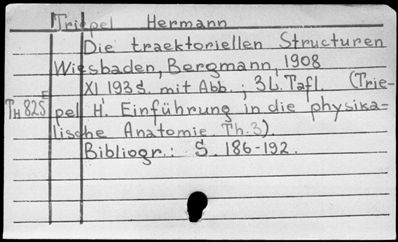 Triepel Hermann
Die traektoriellen Structuren
Wiesbaden, Bergmann, 1908
XI 193 S. mit Abb.; 3 L. Tafl. (Trie=
TH 825 E pel H. Einführung in die physika=
lische Anatomie Th. 3).
Bibliogr.: S. 186-192.